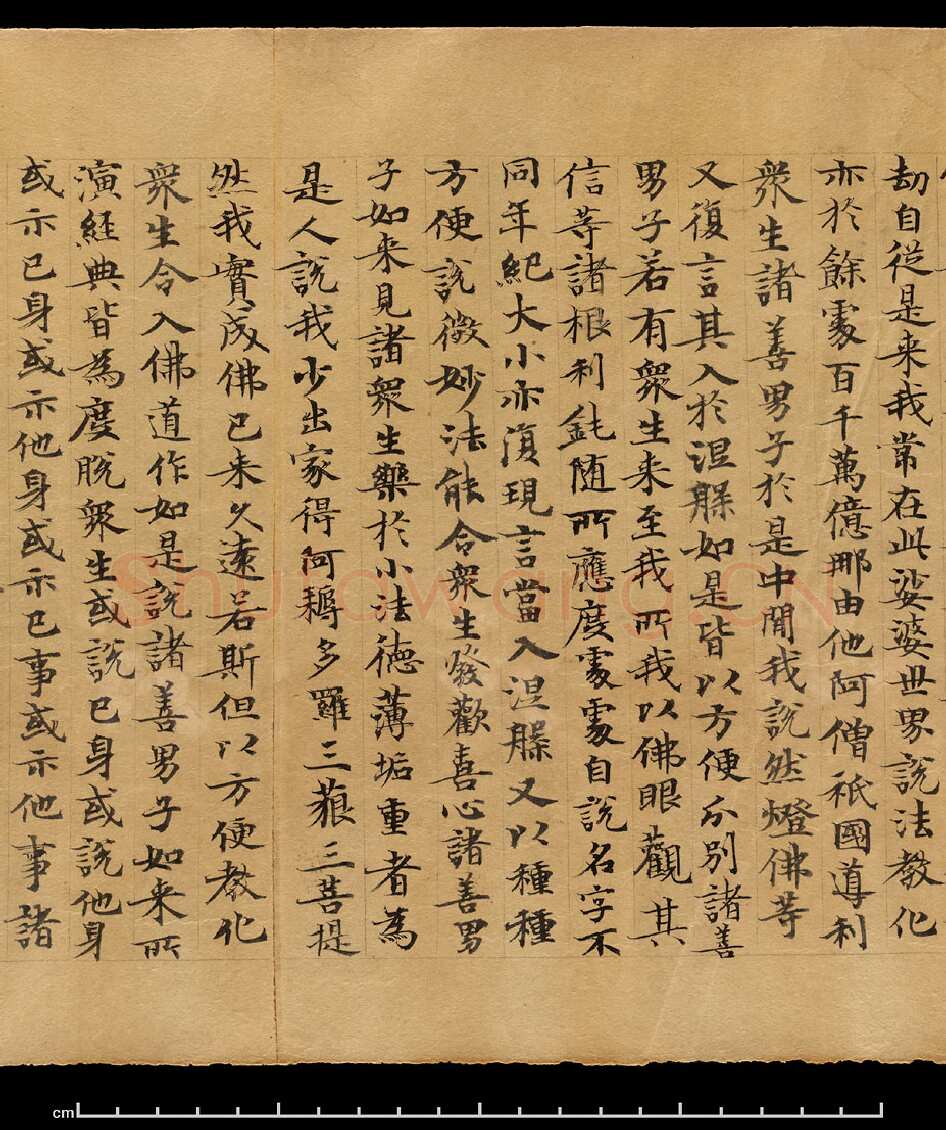 劫自従是来我常在此娑婆世界說法教化
亦於餘處百千萬億那由他阿僧祇國導利
衆生諸善男子於是中閒我說然燈佛等
又復言其入於涅槃如是皆以方便分別諸善
男子若有衆生来至我所我以佛眼觀其
信等諸根利鈍随所應度處處自說名字不
同年紀大小亦復現言當入涅槃又以種種
方便說微妙法能令衆生發歡喜心諸善男
子如来見諸衆生樂於小法德薄垢重者為
是人說我少出家得阿耨多羅三藐三菩提
然我實成佛已来久遠若斯但以方便教化
衆生令入佛道作如是說諸善男子如来所
演經典皆為度脫衆生或說已身或說他身
或示已身或示他身或示已事或示他事諸
Shufawang.CN
cm